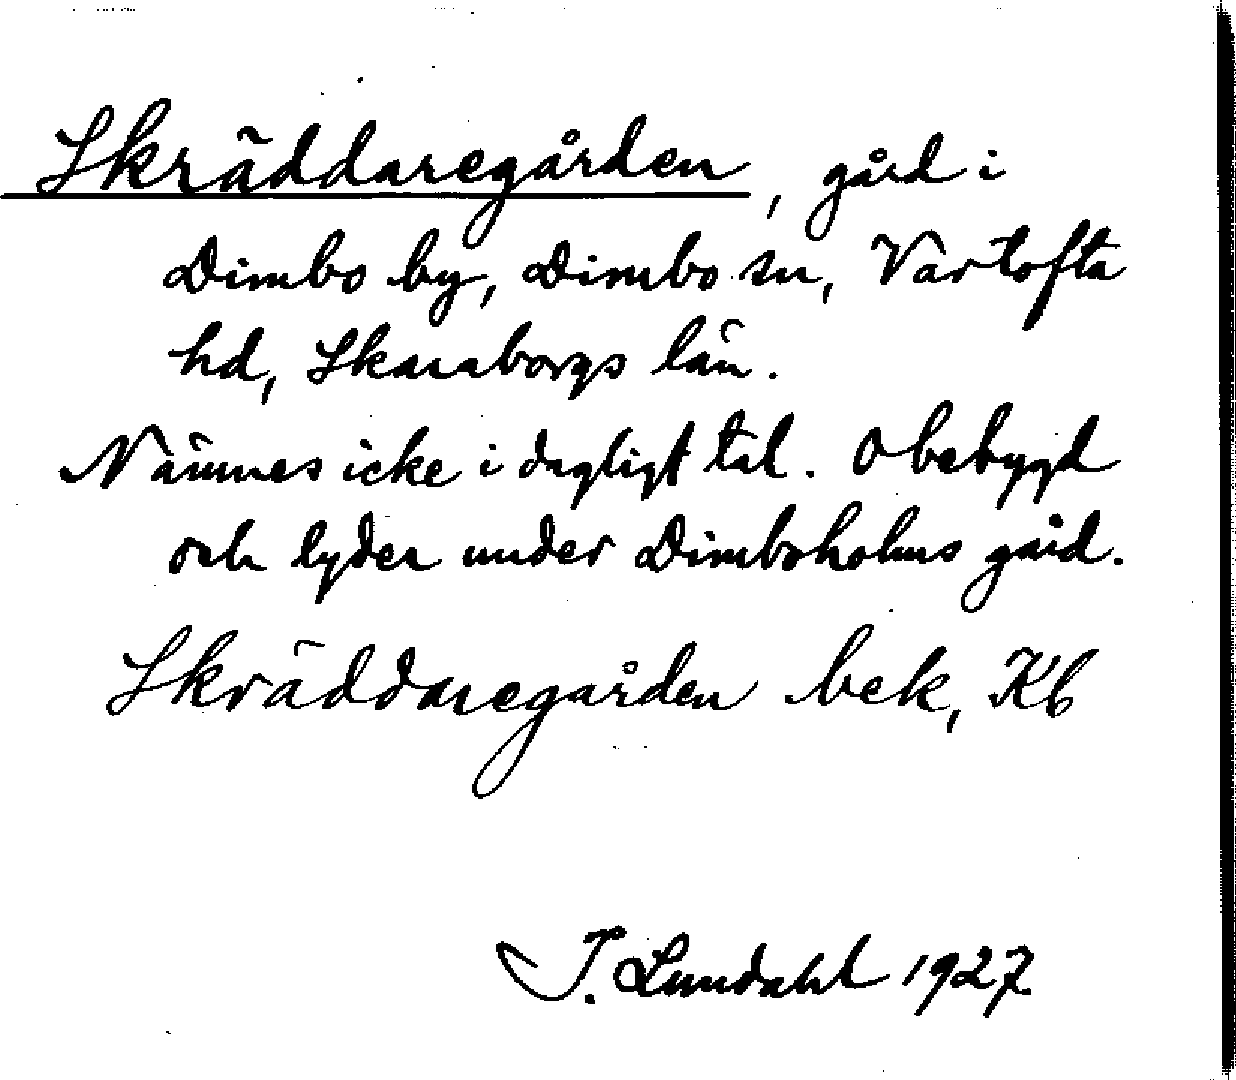 Skräddaregården, gård i
Dimbo by, Dimbo sn, Vartofta
hd, Skaraborgs län.
Nämnes icke i dagligt tal. Obebygd
och lyder under Dimboholms gård.
Skräddaregården bek, Kb
I. Lundahl 1927.